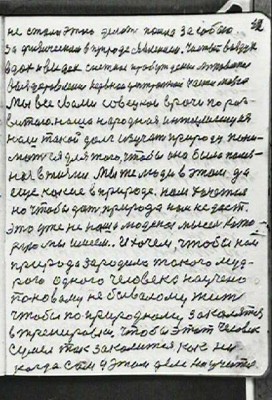 не стали этого делать пошел за собою
за физическим в природе явлением. Человек выдох
вдох и выдох считал пробуждения
выздоровления нервной центральной части мозга
Мы все с вами советские врачи по раз
витою наша народная интеллигенция
нам такой долг изучать природу пони
мать её для того, чтобы она была полез
ная в жизни. Мы же люди в этом да
еще какие в природе. нам хочется
но чтобы дать природа нам не даст.
Это уже не наша людская мысль кото
рую мы имеем. И хочем, чтобы нам
природа зародила такого муд
рого одного человека научено
по новому небывалому жить
чтобы по природному, закалятся
в тренировки, чтобы этот человек
сумел так закалится как ни
когда сам в этом деле научится